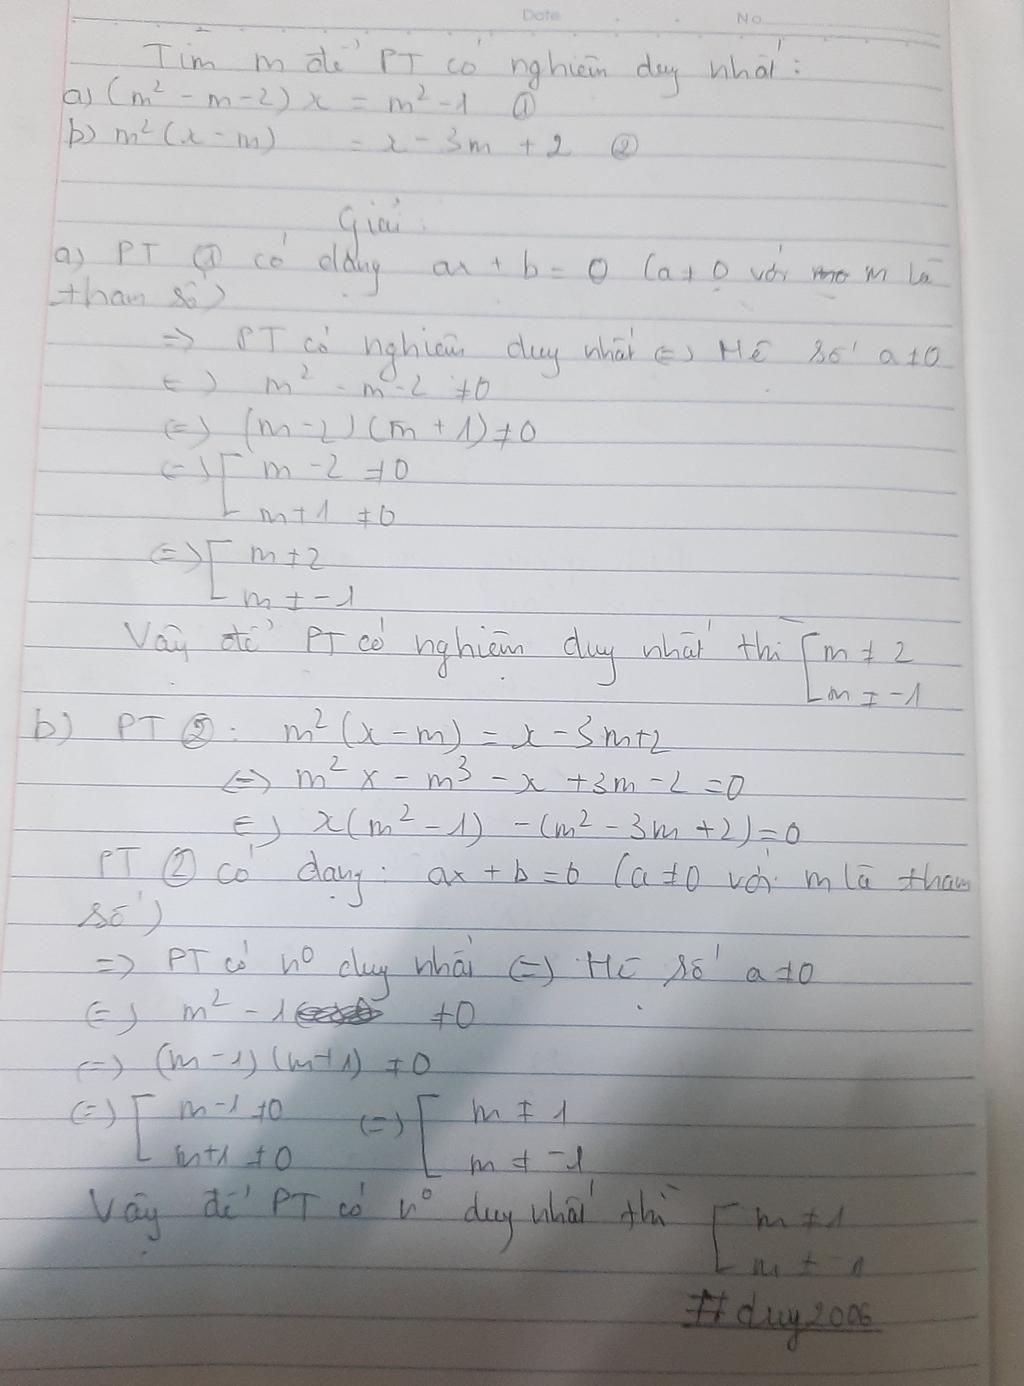 Date No
Tìm m để PT có nghiệm duy nhất :
a) (m² - m - 2) x = m² - 1 ①
b) m² (x - m) = x - 3m + 2 ②
Giải :
a) PT ① có dạng ax + b = 0 (a ≠ 0 với m là
tham số)
=> PT có nghiệm duy nhất <=> Hệ số a ≠ 0
<=> m² - m - 2 ≠ 0
<=> (m - 2) (m + 1) ≠ 0
<=> [ m - 2 ≠ 0
m + 1 ≠ 0
<=> [ m ≠ 2
m ≠ -1
Vậy để PT có nghiệm duy nhất thì [ m ≠ 2
m ≠ -1
b) PT ② : m² (x - m) = x - 3m + 2
<=> m² x - m³ - x + 3m - 2 = 0
<=> x(m² - 1) - (m² - 3m + 2) = 0
PT ② có dạng : ax + b = 0 (a ≠ 0 với m là tham
số)
=> PT có n⁰ duy nhất <=> Hệ số a ≠ 0
<=> m² - 1 ≠ 0
<=> (m - 1) (m + 1) ≠ 0
<=> [ m - 1 ≠ 0 <=> [ m ≠ 1
m + 1 ≠ 0 m ≠ -1
Vậy để PT có n⁰ duy nhất thì [ m ≠ 1
m ≠ -1
#duy2006